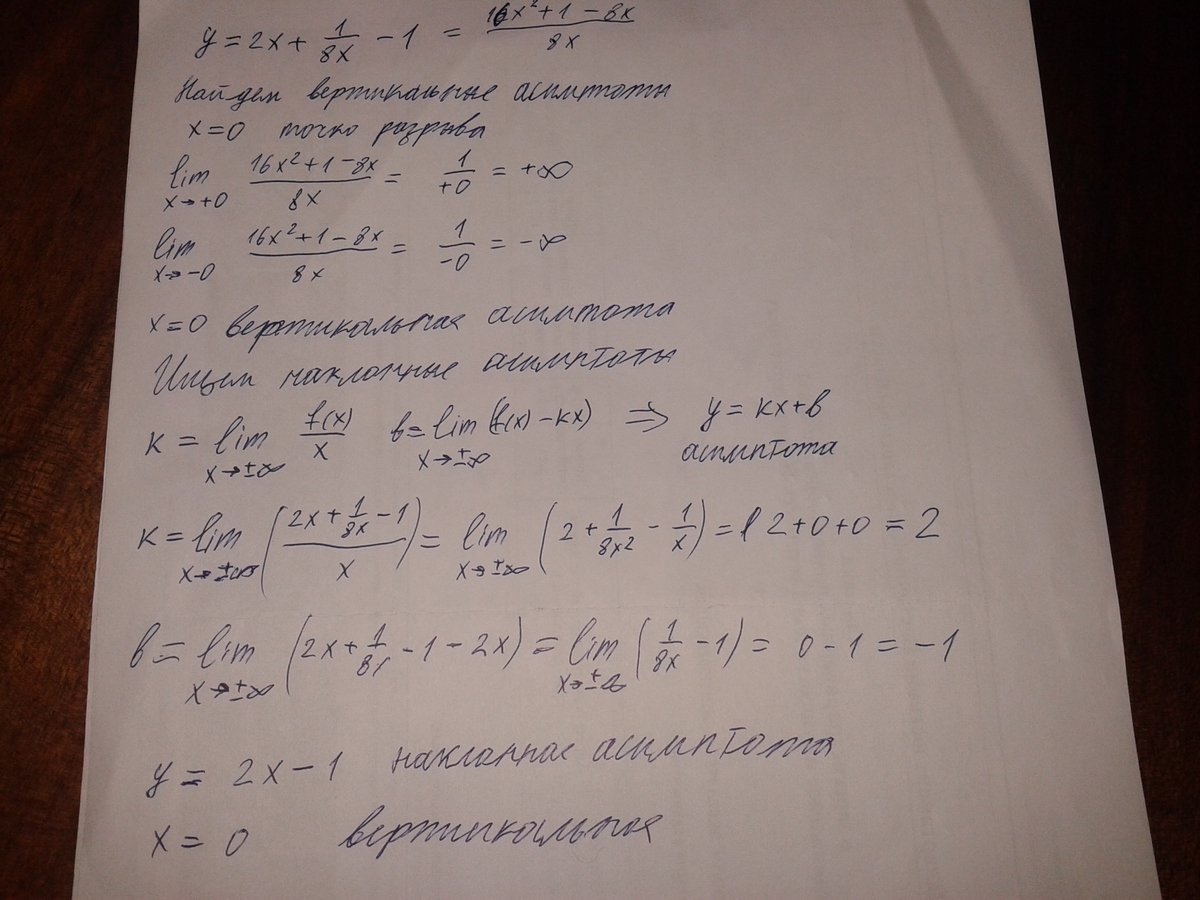 y = 2x + 1/8x - 1 = 16x² + 1 - 8x / 8x
Найдем вертикальные асимтоты
x = 0 точко разрыва
lim x→+0 16x² + 1 - 8x / 8x = 1/+0 = +∞
lim x→-0 16x² + 1 - 8x / 8x = 1/-0 = -∞
x = 0 вертикальная асимтота
Ищем наклонные асимптоты
к = lim x→±∞ f(x)/x в = lim x→±∞ (f(x) - кx) ⇒ y = кx + в
асимптота
к = lim x→±∞ (2x + 1/8x - 1 / x) = lim x→±∞ (2 + 1/8x² - 1/x) = 2 + 0 + 0 = 2
в = lim x→±∞ (2x + 1/8x - 1 - 2x) = lim x→±∞ (1/8x - 1) = 0 - 1 = -1
y = 2x - 1 наклонная асимптота
x = 0 вертикальная